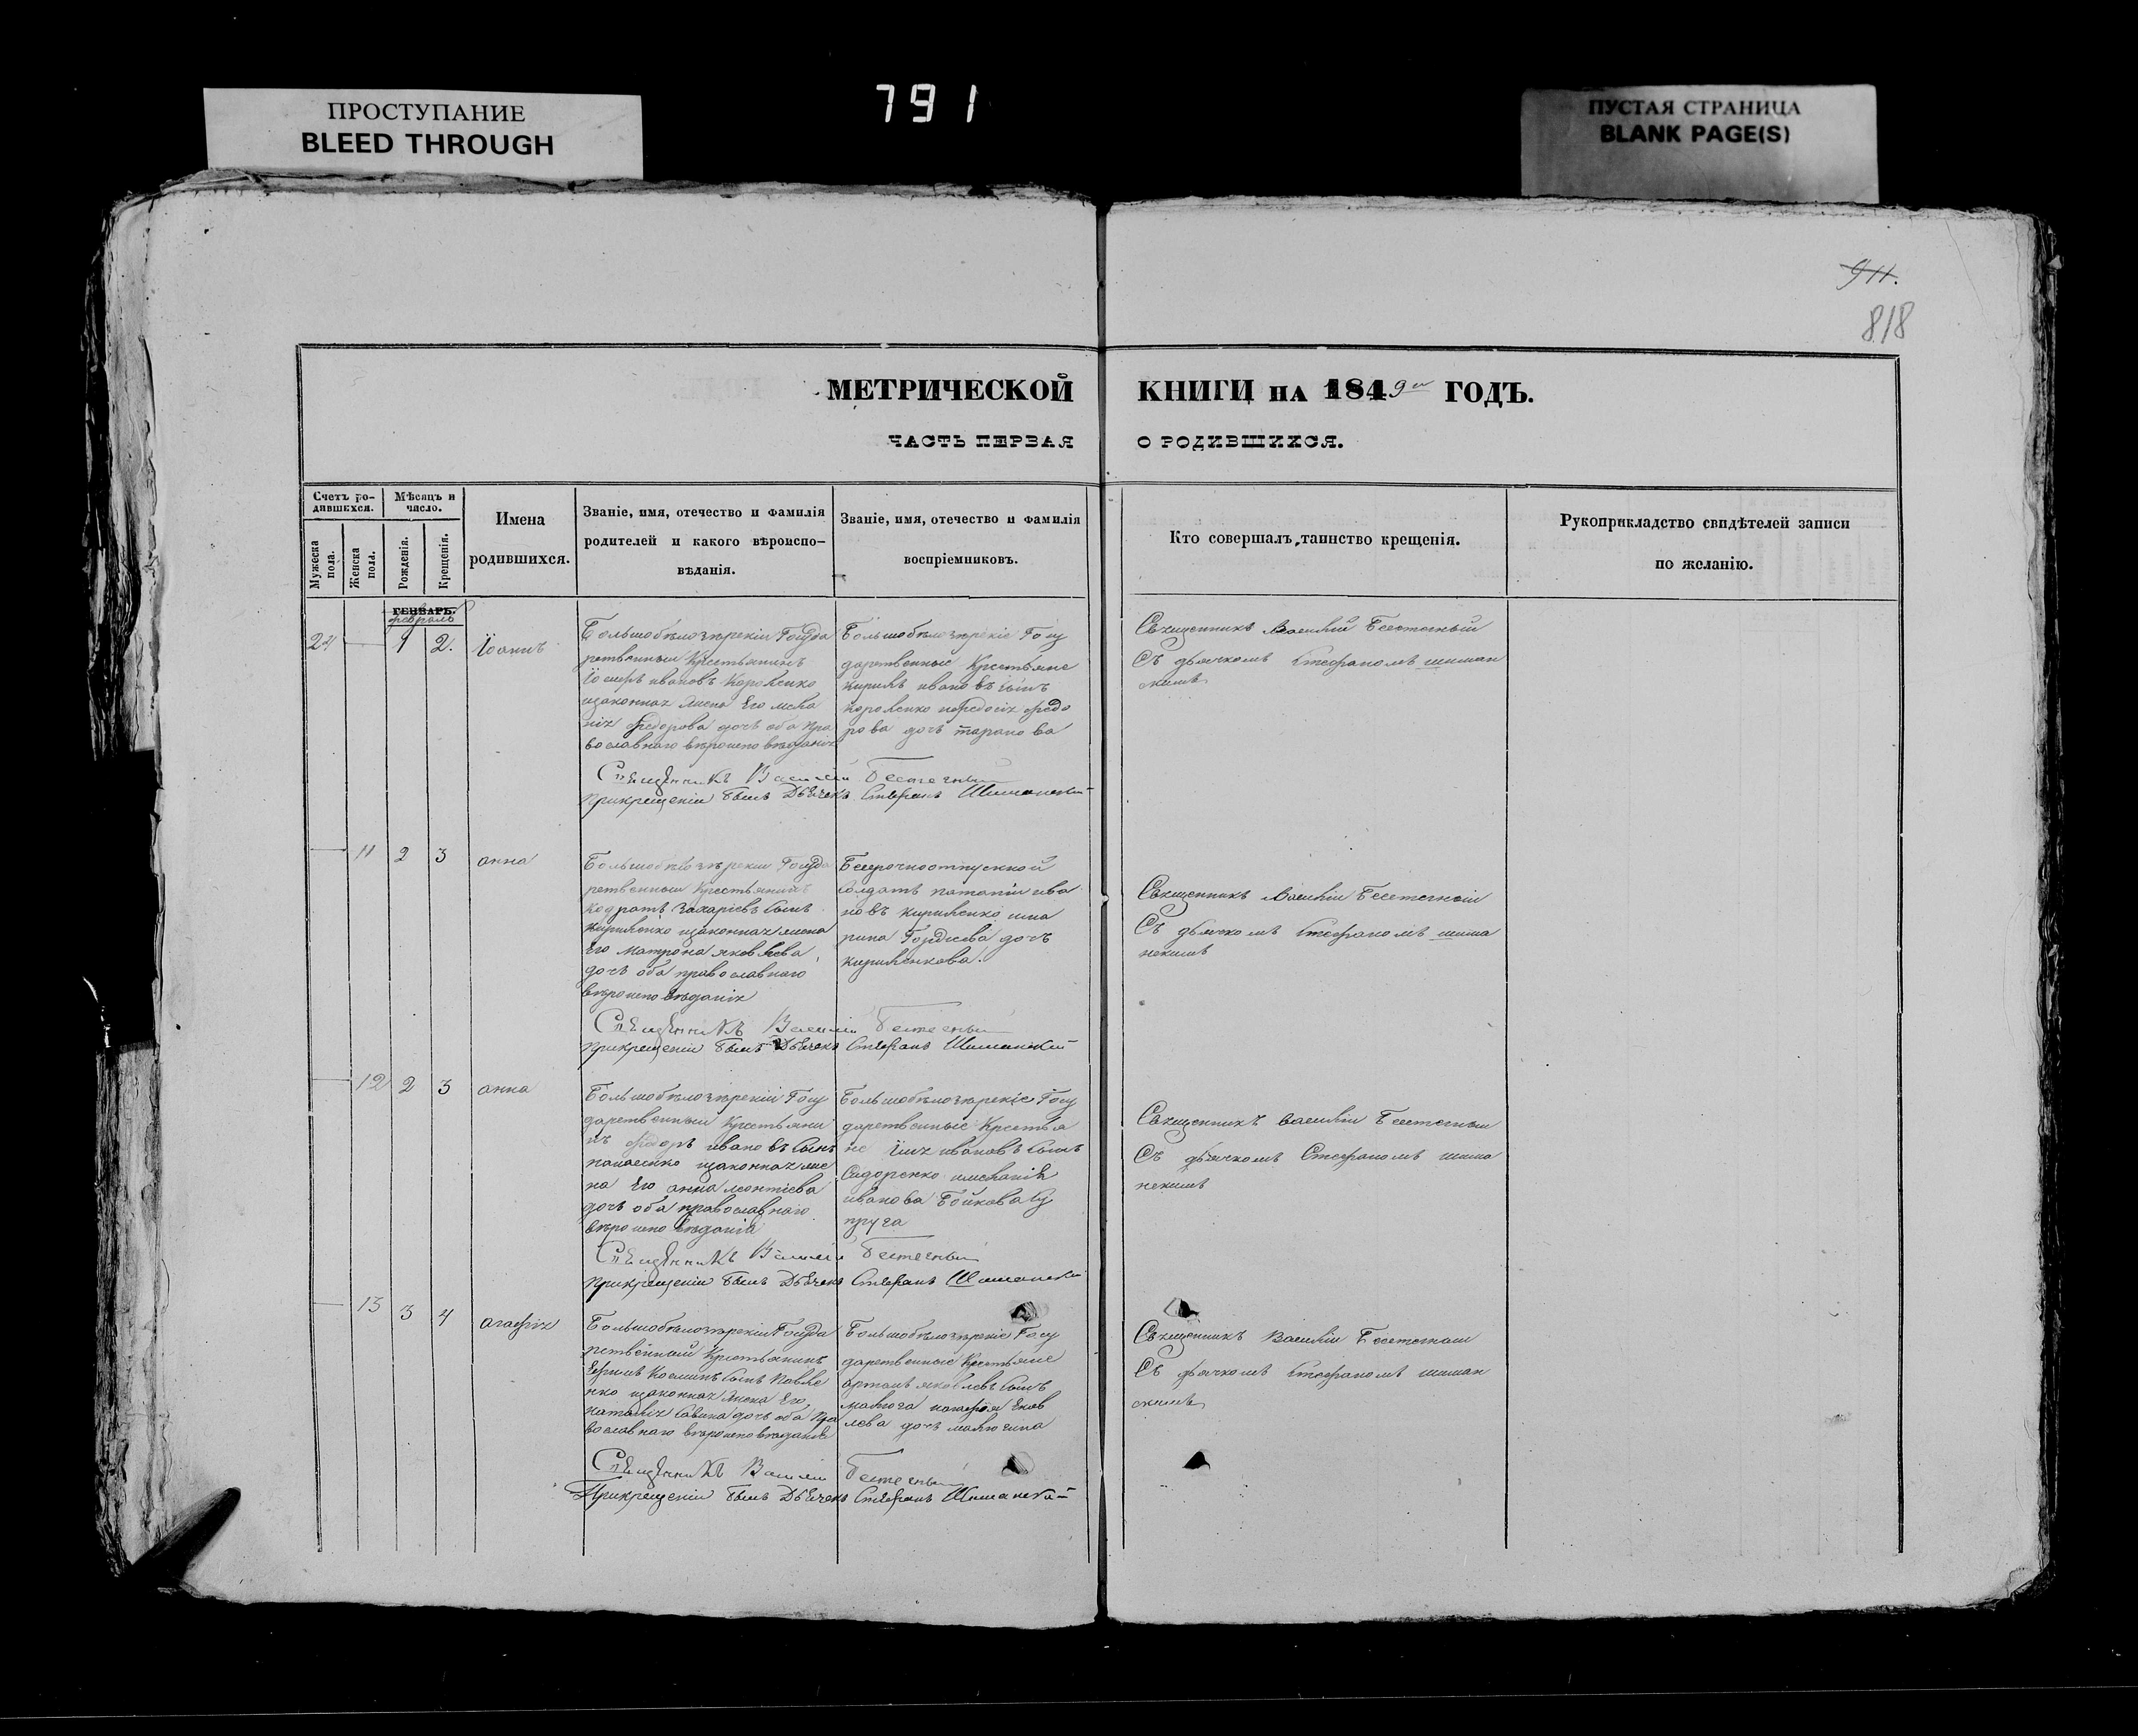 ПРОСТУПАНИЕ
BLEED THROUGH
791
ПУСТАЯ СТРАНИЦА
BLANK PAGE(S)
911.
818
МЕТРИЧЕСКОЙ КНИГИ НА 1849 ГОДЪ.
ЧАСТЬ ПЕРВАЯ О РОДИВШИХСЯ.
Счетъ ро-
дившихся.
Мужеска
пола.
Женска
пола.
Мѣсяцъ и
число.
Рожденія.
Крещенія.
Имена
родившихся.
Званіе, имя, отечество и фамилія
родителей и какого вѣроиспо-
вѣданія.
Званіе, имя, отечество и фамилія
воспріемниковъ.
Кто совершалъ таинство крещенія.
Рукоприкладство свидѣтелей записи
по желанію.
ГЕНВАРЬ.
февраль
1 2. Іоаннъ
Большобѣлозѣрскій Госуда
рственный Крестьянинъ
Іосифъ ивановъ Короленко
изаконная жена Его меѳа
нія Федорова дочь оба Пра
вославнаго вѣроисповѣданія
Большобѣлозѣрскіе Госу
дарственные Крестьяне
кирилъ ивановъ сынъ
короленко иѳедосія федо
рова дочь таранова
Священникъ Василій Бестечный
Съ дьячкомъ Стефаномъ шиман
скимъ
Священникъ Василій Бестечный
Прикрещеніи былъ Дьячекъ Стефанъ Шиманскій
11 2 3 анна
Большобѣлозѣрскій Госуда
рственный Крестьянинъ
кодратъ Захаріевъ сынъ
кириленко изаконная жена
Его матрона яковлева
дочь оба православнаго
вѣроисповѣданія
Безсрочноотпускной
Солдатъ потапій ива
новъ кириленко има
рина Гордѣева дочь
кириленкова.
Священникъ Василій Бестечный
Съ дьячкомъ Стефаномъ шима
нскимъ
Священникъ Василій Бестечный
Прикрещеніи былъ Дьячекъ Стефанъ Шиманскій
12 2 3 анна
Большобѣлозѣрскій Госу
дарственный Крестьяни
нъ федоръ ивановъ сынъ
изаконная же
на Его анна леонтіева
дочь оба православнаго
вѣроисповѣданія
Большобѣлозѣрскіе Госу
дарственные Крестья
не илія ивановъ сынъ
Сидоренко имеѳанія
иванова Бойкова Су
пруга
Священникъ Василій Бестечный
Съ дьячкомъ Стефаномъ шима
нскимъ
Священникъ Василій Бестечный
Прикрещеніи былъ Дьячекъ Стефанъ Шиманскій
13 3 4 агафія
Большобѣлозѣрскій Госуда
рственный Крестьянинъ
Ефимъ Косминъ сынъ Павле
нко изаконная жена Его
наталія Савина дочь оба Пра
вославнаго вѣроисповѣданія
Большобѣлозѣрскіе Госу
дарственные Крестьяне
яковлевъ сынъ
малюга Яков
лева дочь малюгина
Священникъ Василій Бестечный
Съ дьячкомъ Стефаномъ шиман
скимъ
Священникъ Василій Бестечный
Прикрещеніи былъ Дьячекъ Стефанъ Шиманскій